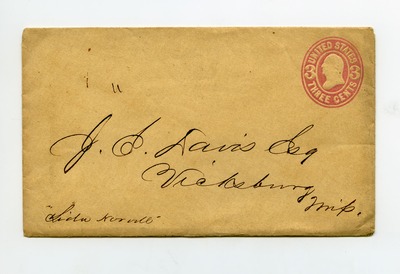 UNITED STATES
3 3
THREE CENTS
J. E. Davis Esq
Vicksburg
Miſs.
"